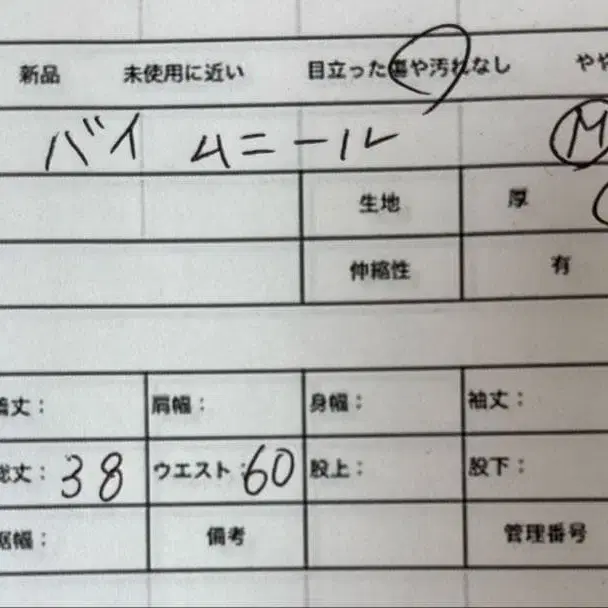 新品 未使用に近い 目立った傷や汚れなし やや
バイ ムニール M
生地 厚
伸縮性 有
着丈： 肩幅： 身幅： 袖丈：
総丈：38 ウエスト：60 股上： 股下：
裾幅： 備考 管理番号